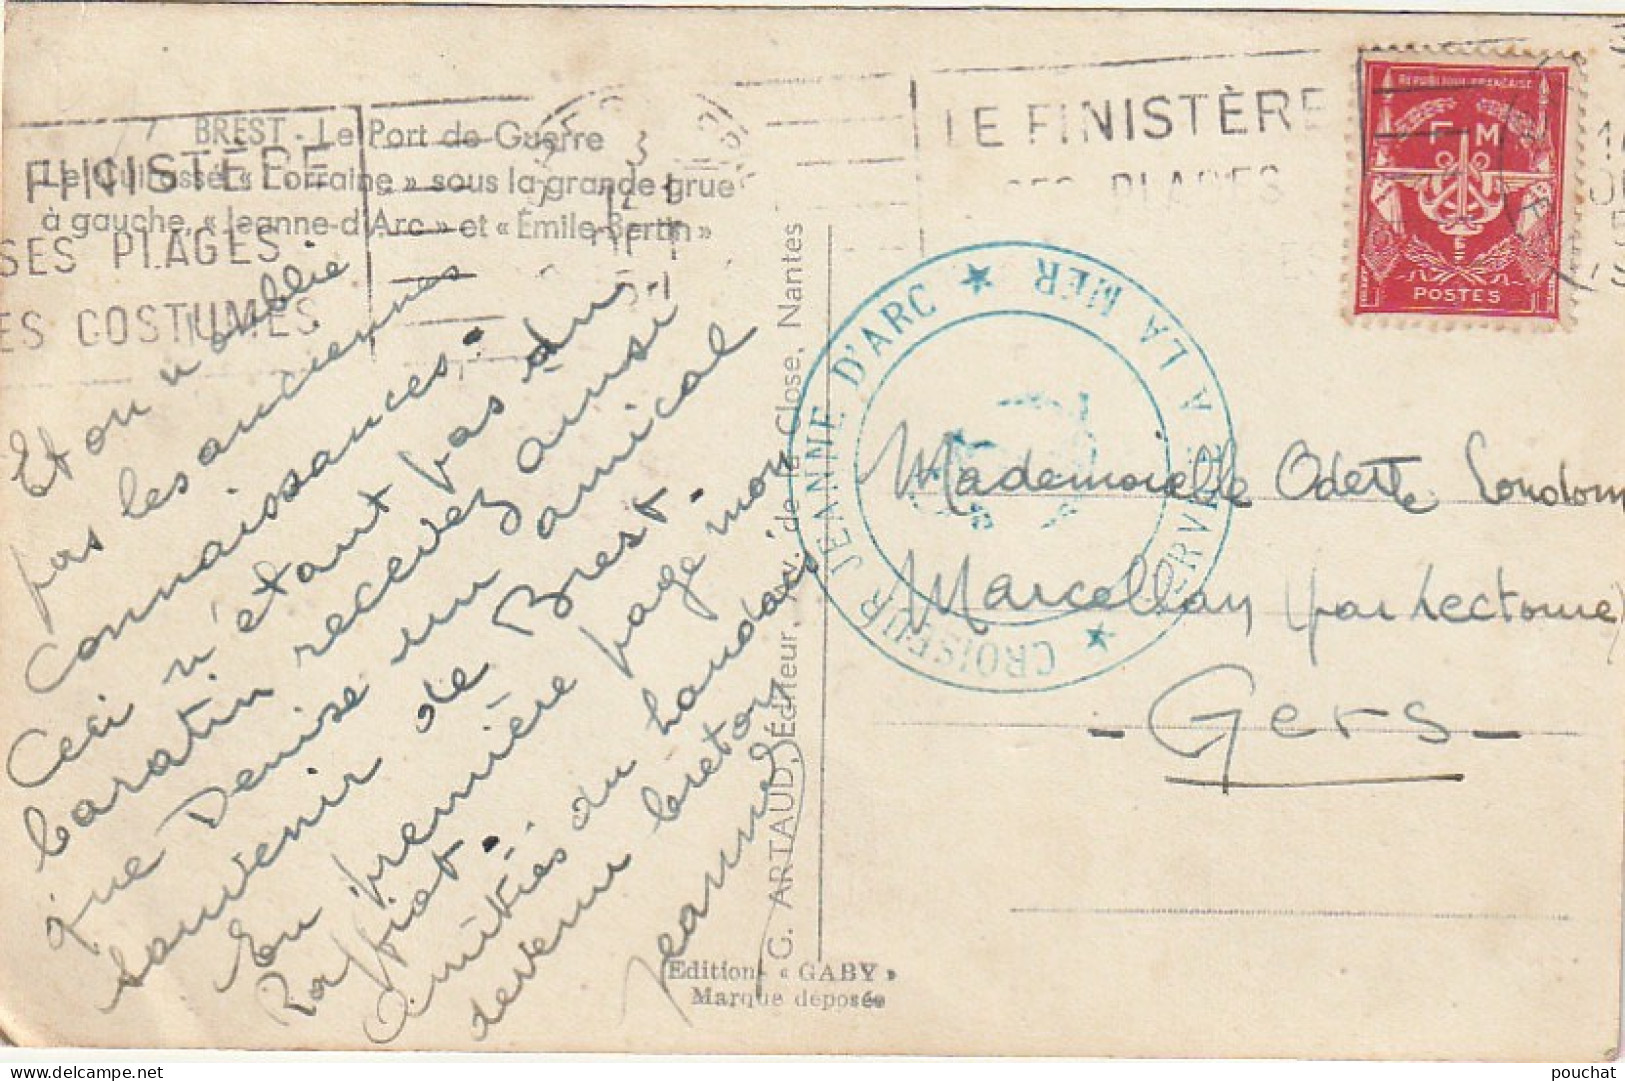 BREST - Le Port de Guerre
Le Cuirassé « Lorraine » sous la grande grue
à gauche, « Jeanne-d'Arc » et « Émile-Bertin »
FINISTÈRE
SES PLAGES
ES COSTUMES
LE FINISTÈRE
SES PLAGES
REPUBLIQUE FRANÇAISE
F M
POSTES
CROISEUR JEANNE D'ARC ★ SERVICE A LA MER ★
Et on n'oublie
pas les anciennes
connaissances.
Ceci n'étant pas du
baratin recevez ainsi
que Denise un amical
souvenir de Brest.
En première page mon
Rafiot.
Amitiés du landais
devenu breton
Mademoiselle Odette
Marcellan (par Lectoure)
- Gers -
G. ARTAUD, Éditeur, Av. de la Close, Nantes
Edition « GABY »
Marque déposée
delcampe.net
pouchat